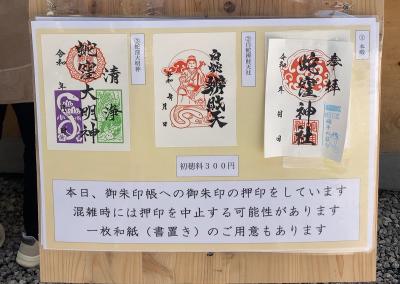 ①本殿
奉拝
蛇窪神社
令和 年 月 日
②白蛇辨財天社
白蛇辨財天
令和 年 月 日
③蛇窪大明神
清浄
蛇窪大明神
令和 年
初穂料３００円
本日、御朱印帳への御朱印の押印をしています
混雑時には押印を中止する可能性があります
一枚和紙（書置き）のご用意もあります